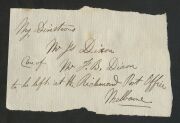 My Directions
Mr Jn Dixon
Care of Mr F. B. Dixon
to be left at the Richmond Post Office
Melbourne